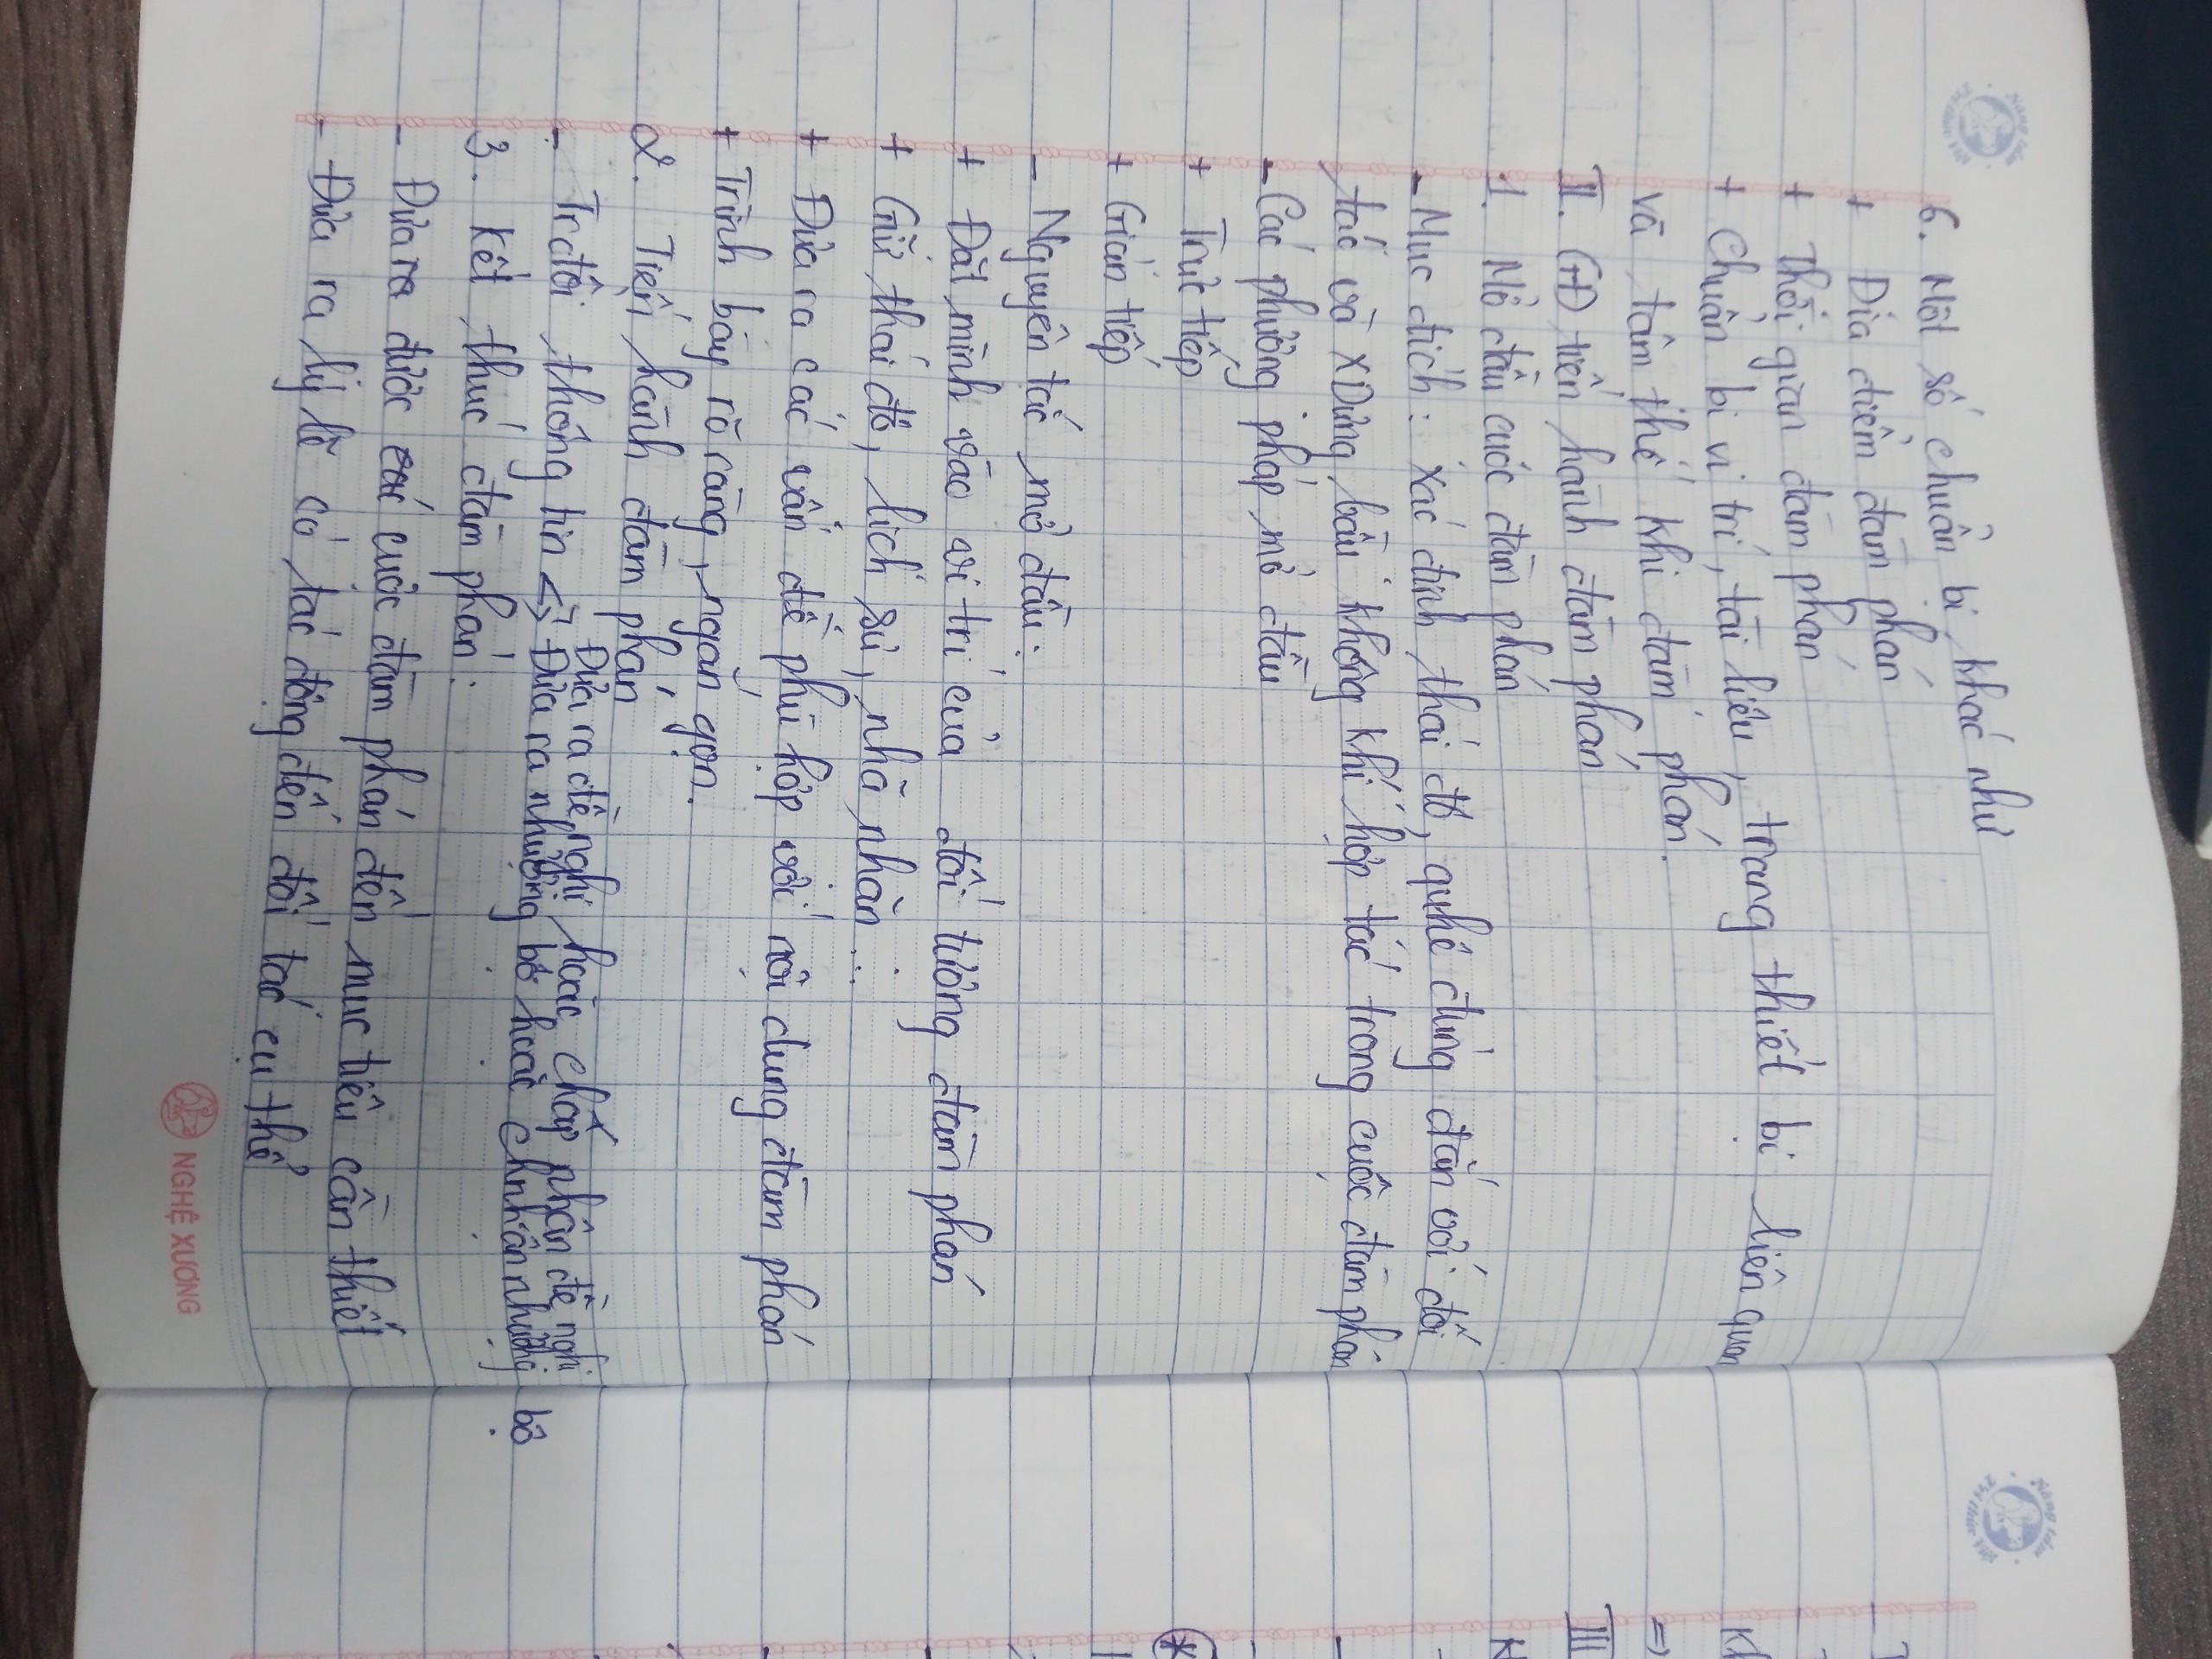 6. Một số chuẩn bị khác như
+ Địa điểm đàm phán
+ Thời gian đàm phán
+ Chuẩn bị vị trí, tài liệu, trang thiết bị liên quan
và tâm thế khi đàm phán.
II. GĐ tiến hành đàm phán
1. Mở đầu cuộc đàm phán
- Mục đích: Xác định thái độ, qunhệ đúng đắn với đối
tác và xDựng bầu không khí hợp tác trong cuộc đàm phán
- Các phương pháp mở đầu
+ Trực tiếp
+ Gián tiếp
- Nguyên tắc mở đầu:
+ Đặt mình vào vị trí của đối tượng đàm phán
+ Giữ thái độ, lịch sự, nhã nhặn...
+ Đưa ra các vấn đề phù hợp với nội dung đàm phán
+ Trình bày rõ ràng, ngắn gọn.
2. Tiến hành đàm phán
Đưa ra đề nghị hoặc chấp nhận đề nghị
- Trđổi thông tin <=> Đưa ra nhượng bộ hoặc chnhận nhượng bộ
3. Kết thúc đàm phán:
- Đưa ra được các cuộc đàm phán đến mục tiêu cần thiết
- Đưa ra lý lẽ có tác động đến đối tác cụ thể
NGHỆ XƯƠNG
III
=>